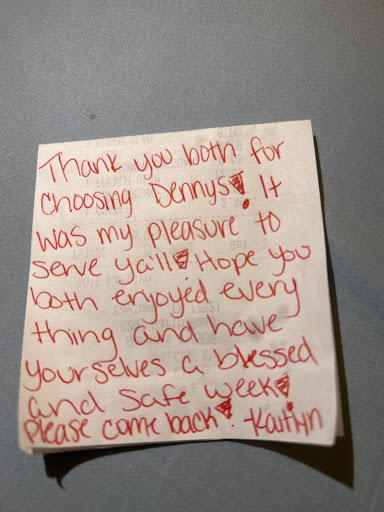 Thank you both for
choosing Dennys! It
was my pleasure to
serve ya'll! Hope you
both enjoyed every
thing and have
yourselves a blessed
and safe week!
Please come back! -Kaitlyn